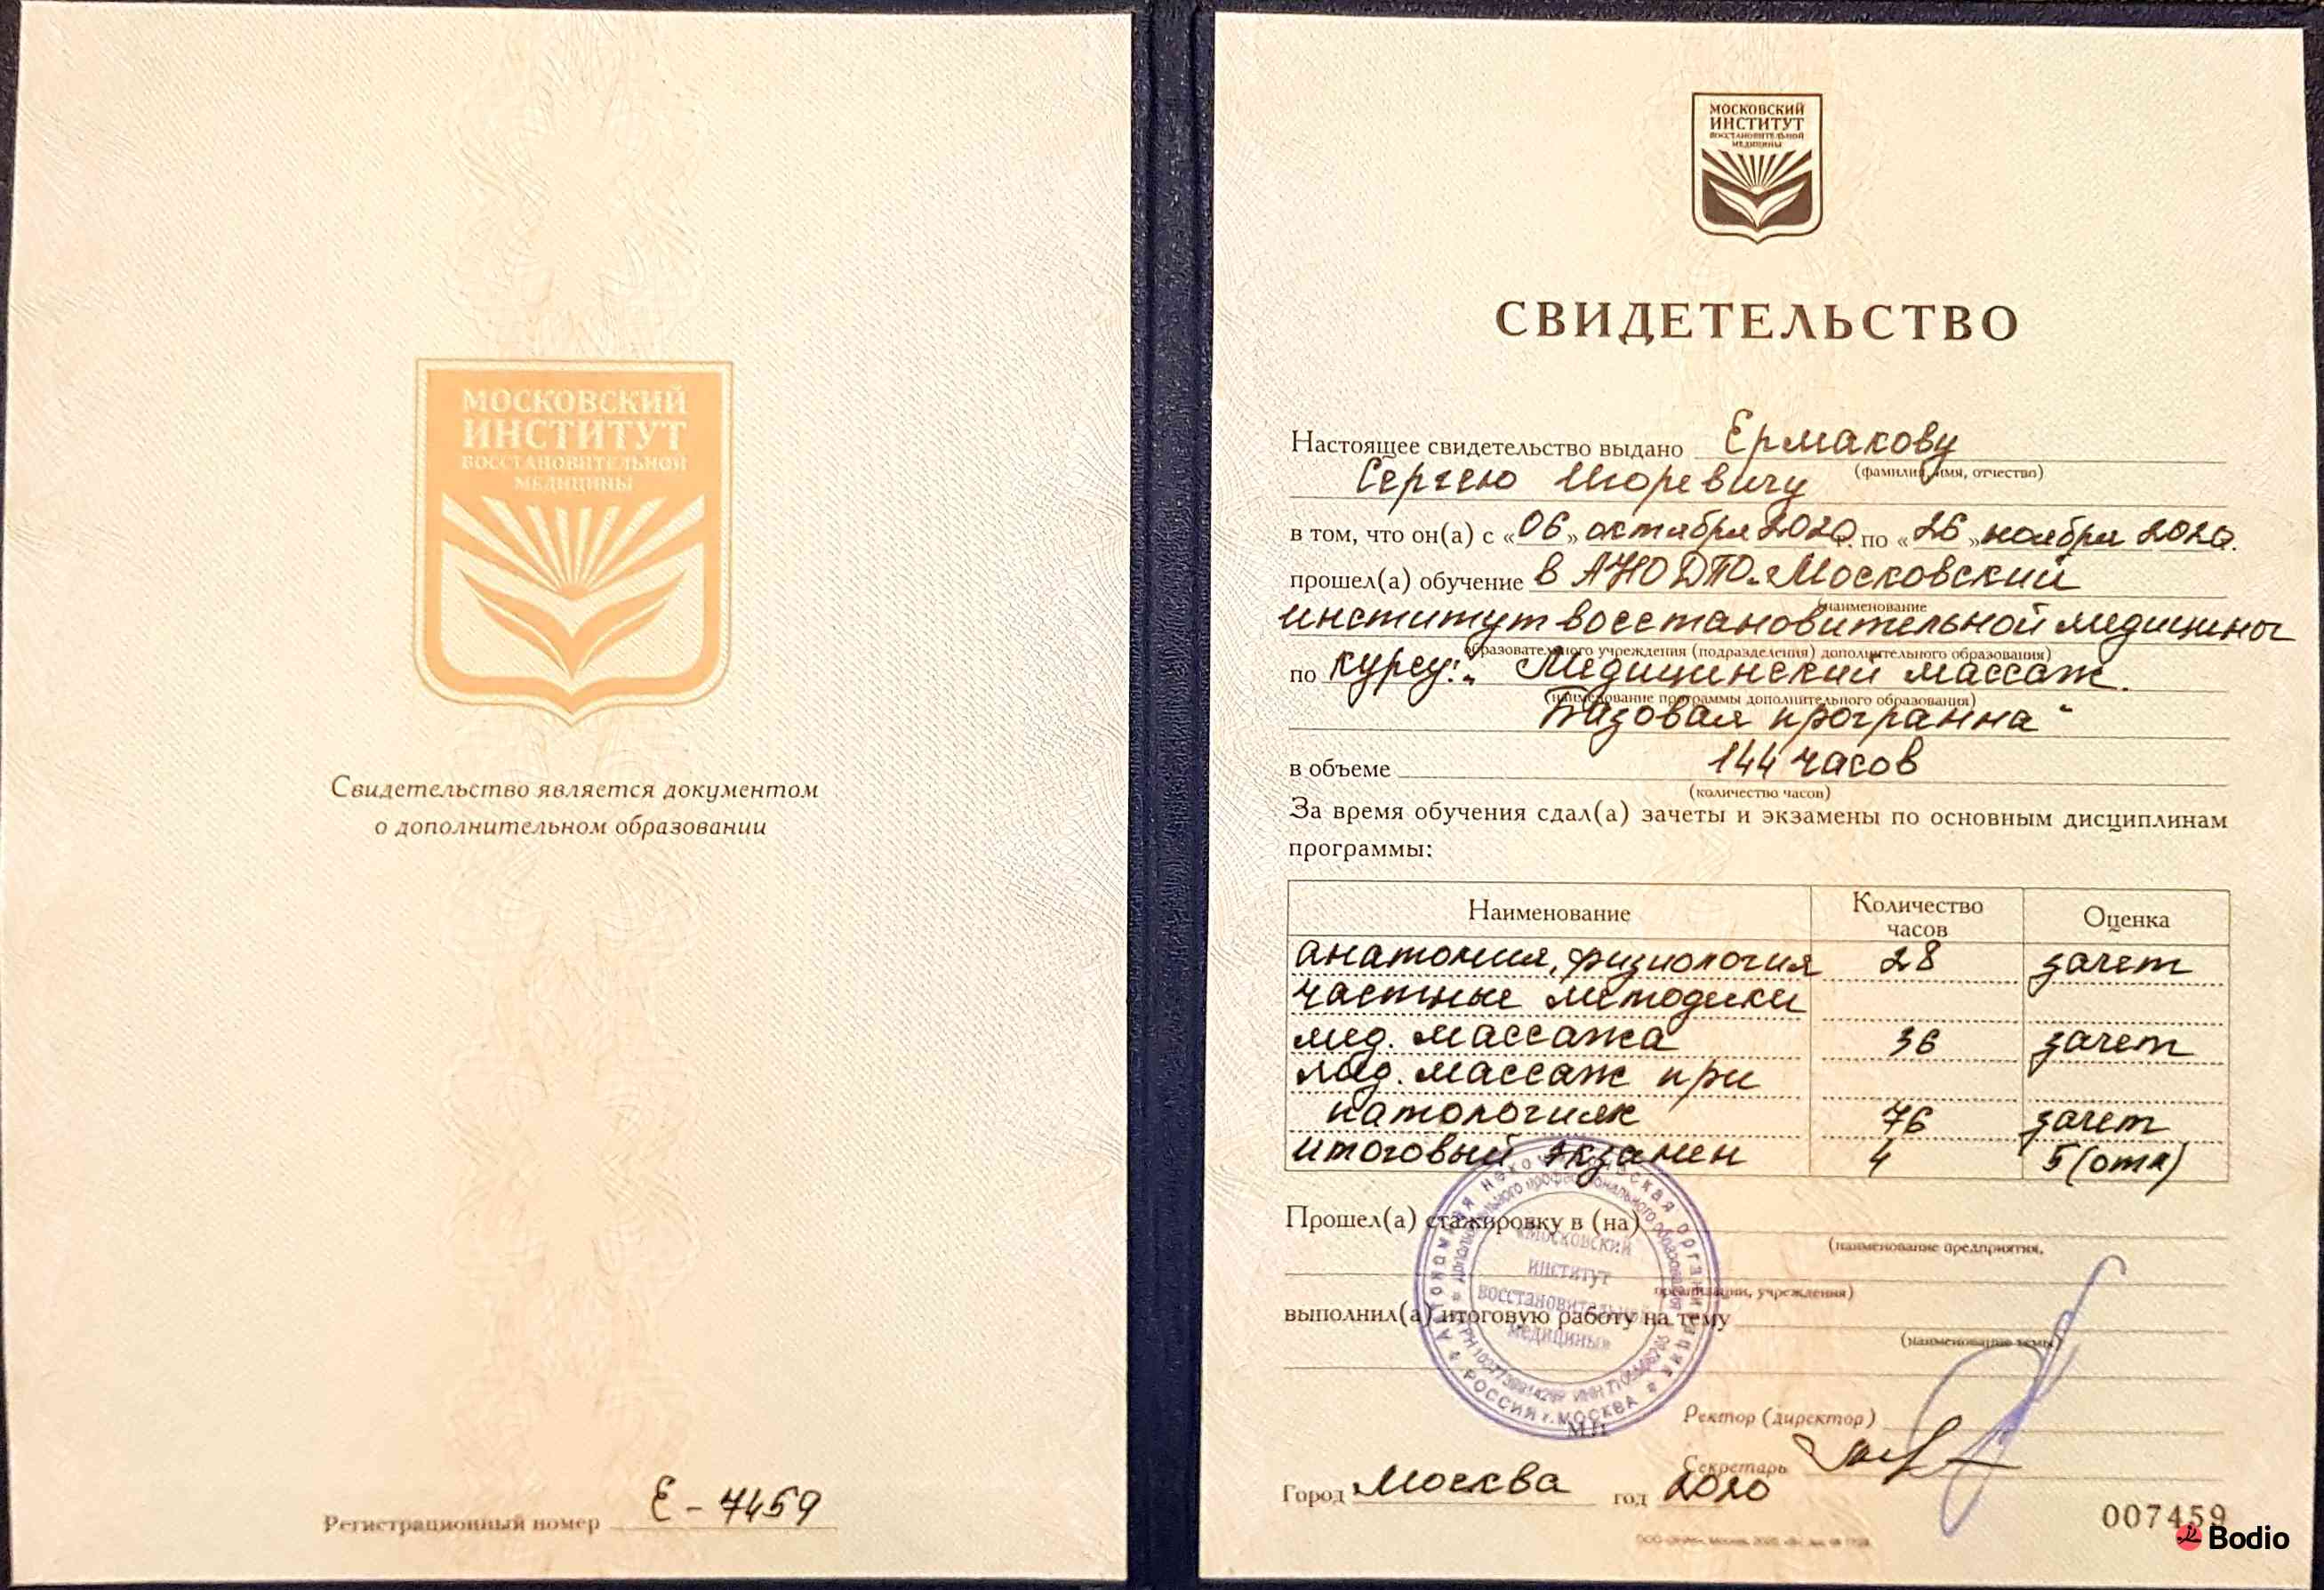 МОСКОВСКИЙ
ИНСТИТУТ
ВОССТАНОВИТЕЛЬНОЙ
МЕДИЦИНЫ
Свидетельство является документом
о дополнительном образовании
Регистрационный номер Е - 7459
МОСКОВСКИЙ
ИНСТИТУТ
ВОССТАНОВИТЕЛЬНОЙ
МЕДИЦИНЫ
СВИДЕТЕЛЬСТВО
Настоящее свидетельство выдано Ермакову
(фамилия, имя, отчество)
Сергею Игоревичу
в том, что он(а) с «06» октября 2020 г. по «26» ноября 2020.
прошел(а) обучение в АНО ДПО «Московский
(наименование
институт восстановительной медицины
образовательного учреждения (подразделения) дополнительного образования)
по курсу: „Медицинский массаж.
(наименование программы дополнительного образования)
Базовая программа“
в объеме 144 часов
(количество часов)
За время обучения сдал(а) зачеты и экзамены по основным дисциплинам
программы:
Наименование Количество часов Оценка
анатомия, физиология 28 зачет
частные методики
мед. массажа 36 зачет
мед. массаж при
патологиях 76 зачет
итоговый экзамен 4 5 (отл)
Прошел(а) стажировку в (на)
(наименование предприятия,
организации, учреждения)
выполнил(а) итоговую работу на тему
(наименование темы)
Автономная некоммерческая организация
дополнительного профессионального образования
«Московский
институт
восстановительной
медицины»
РОССИЯ г. МОСКВА
М.П.
Ректор (директор)
Секретарь
Город Москва год 2020
007459
Bodio